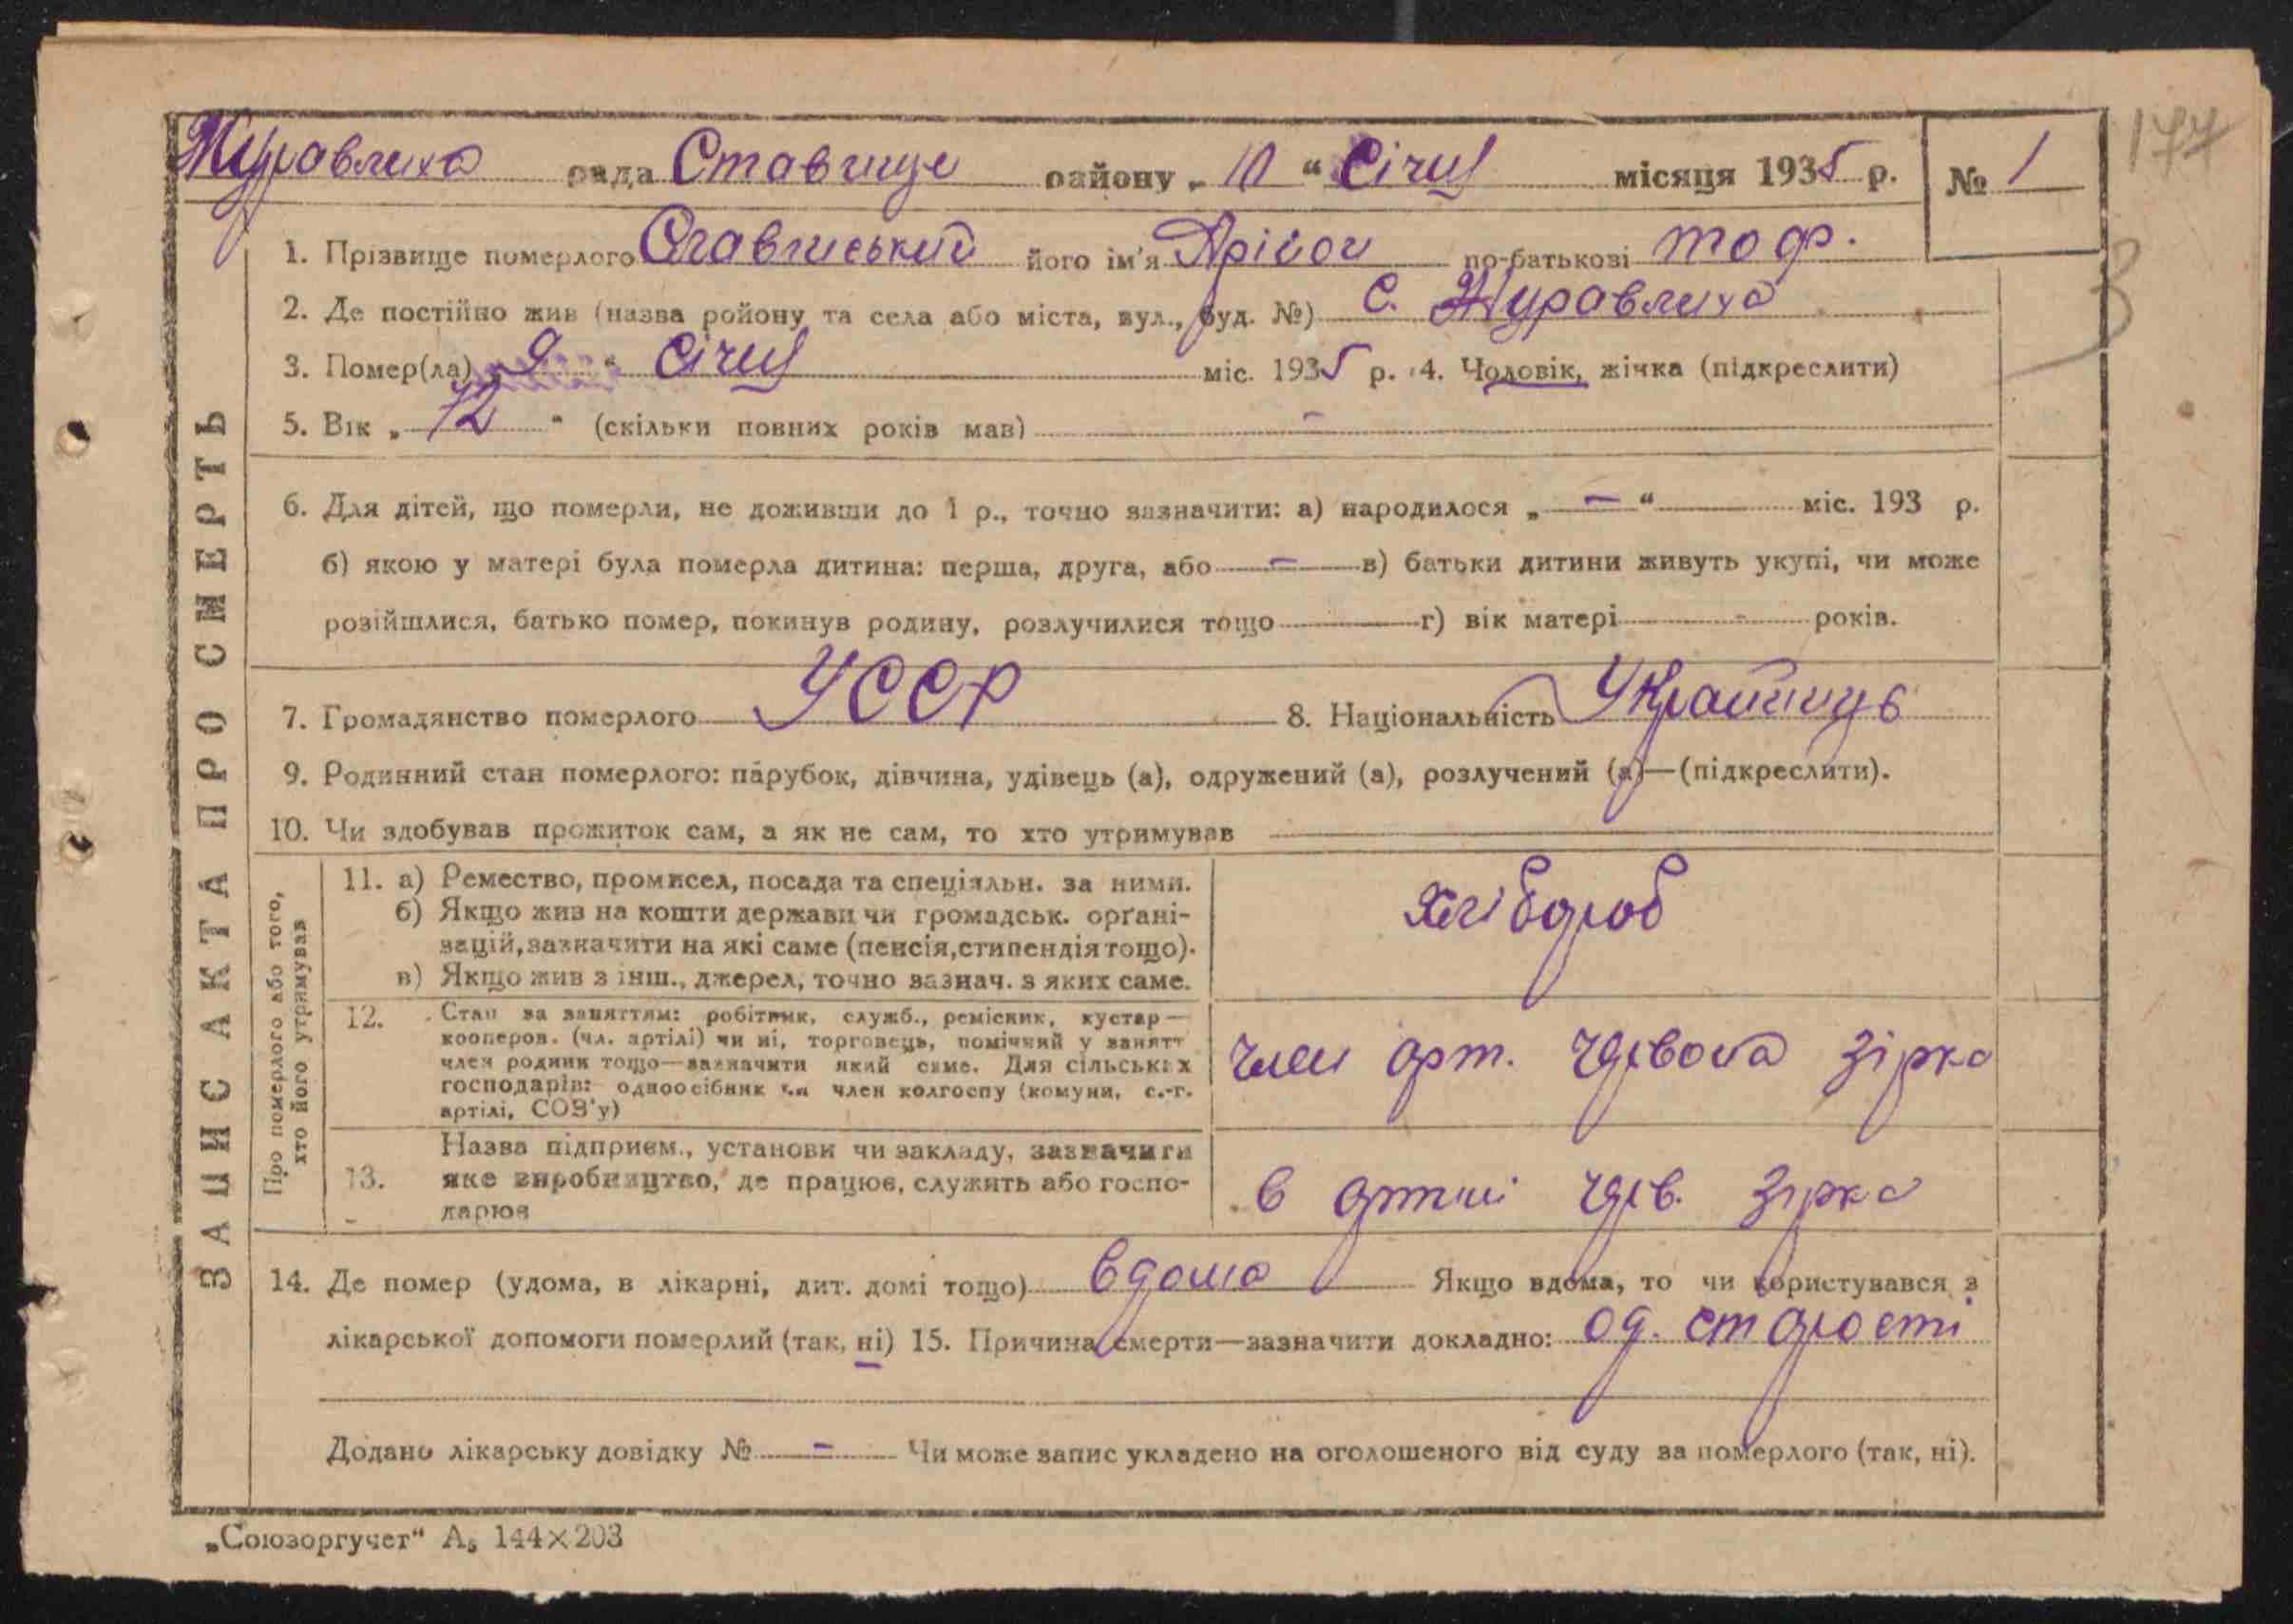 Журавлиха рада Ставище району „ 10 “ Січня місяця 1935 р. № 1
177
3
1. Прізвище померлого його ім'я по-батькові тоф.
2. Де постійно жив (назва ройону та села або міста, вул., буд. №) с. Журавлиха
3. Помер(ла) „ 9 “ Січня міс. 1935 р. 4. Чоловік, жінка (підкреслити)
5. Вік „ 72 “ (скільки повних років мав) –
6. Для дітей, що померли, не доживши до 1 р., точно зазначити: а) народилося „ – “ міс. 193 р.
б) якою у матері була померла дитина: перша, друга, або – в) батьки дитини живуть укупі, чи може
розійшлися, батько помер, покинув родину, розлучилися тощо г) вік матері - років.
7. Громадянство померлого УССР 8. Національність Українць
9. Родинний стан померлого: парубок, дівчина, удівець (а), одружений (а), розлучений (а)—(підкреслити).
10. Чи здобував прожиток сам, а як не сам, то хто утримував
ЗАПИС АКТА ПРО СМЕРТЬ
Про померлого або того,
хто його утримував
11. а) Ремество, промисел, посада та спеціяльн. за ними.
б) Якщо жив на кошти держави чи громадськ. орґані-
зацій, зазначити на які саме (пенсія, стипендія тощо).
в) Якщо жив з інш., джерел, точно зазнач. з яких саме.
хлібороб
12. Стан за заняттям: робітник, служб., ремісник, кустар—
кооперов. (чл. артілі) чи ні, торговець, помічний у занятт
член родини тощо—зазначити який саме. Для сільських
господарів: одноосібник чи член колгоспу (комуни, с.-г.
артілі, СОЗ'у)
член арт. червона зірка
13. Назва підприєм., установи чи закладу, зазначити
яке виробництво, де працює, служить або госпо-
дарює
в артілі черв. зірка
14. Де помер (удома, в лікарні, дит. домі тощо) вдома Якщо вдома, то чи користувався з
лікарської допомоги померлий (так, ні) 15. Причина смерти—зазначити докладно: од. старости
Додано лікарську довідку № – Чи може запис укладено на оголошеного від суду за померлого (так, ні).
„Союзоргучет“ А₅ 144×203